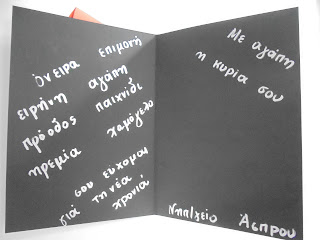 Όνειρα επιμονή
ειρήνη αγάπη
πρόοδος παιχνίδι
ηρεμία χαμόγελο
σου εύχομαι
γιά τη νέα
χρονιά
Με αγάπη
η κυρία σου
Νηπιαγείο Άσπρου